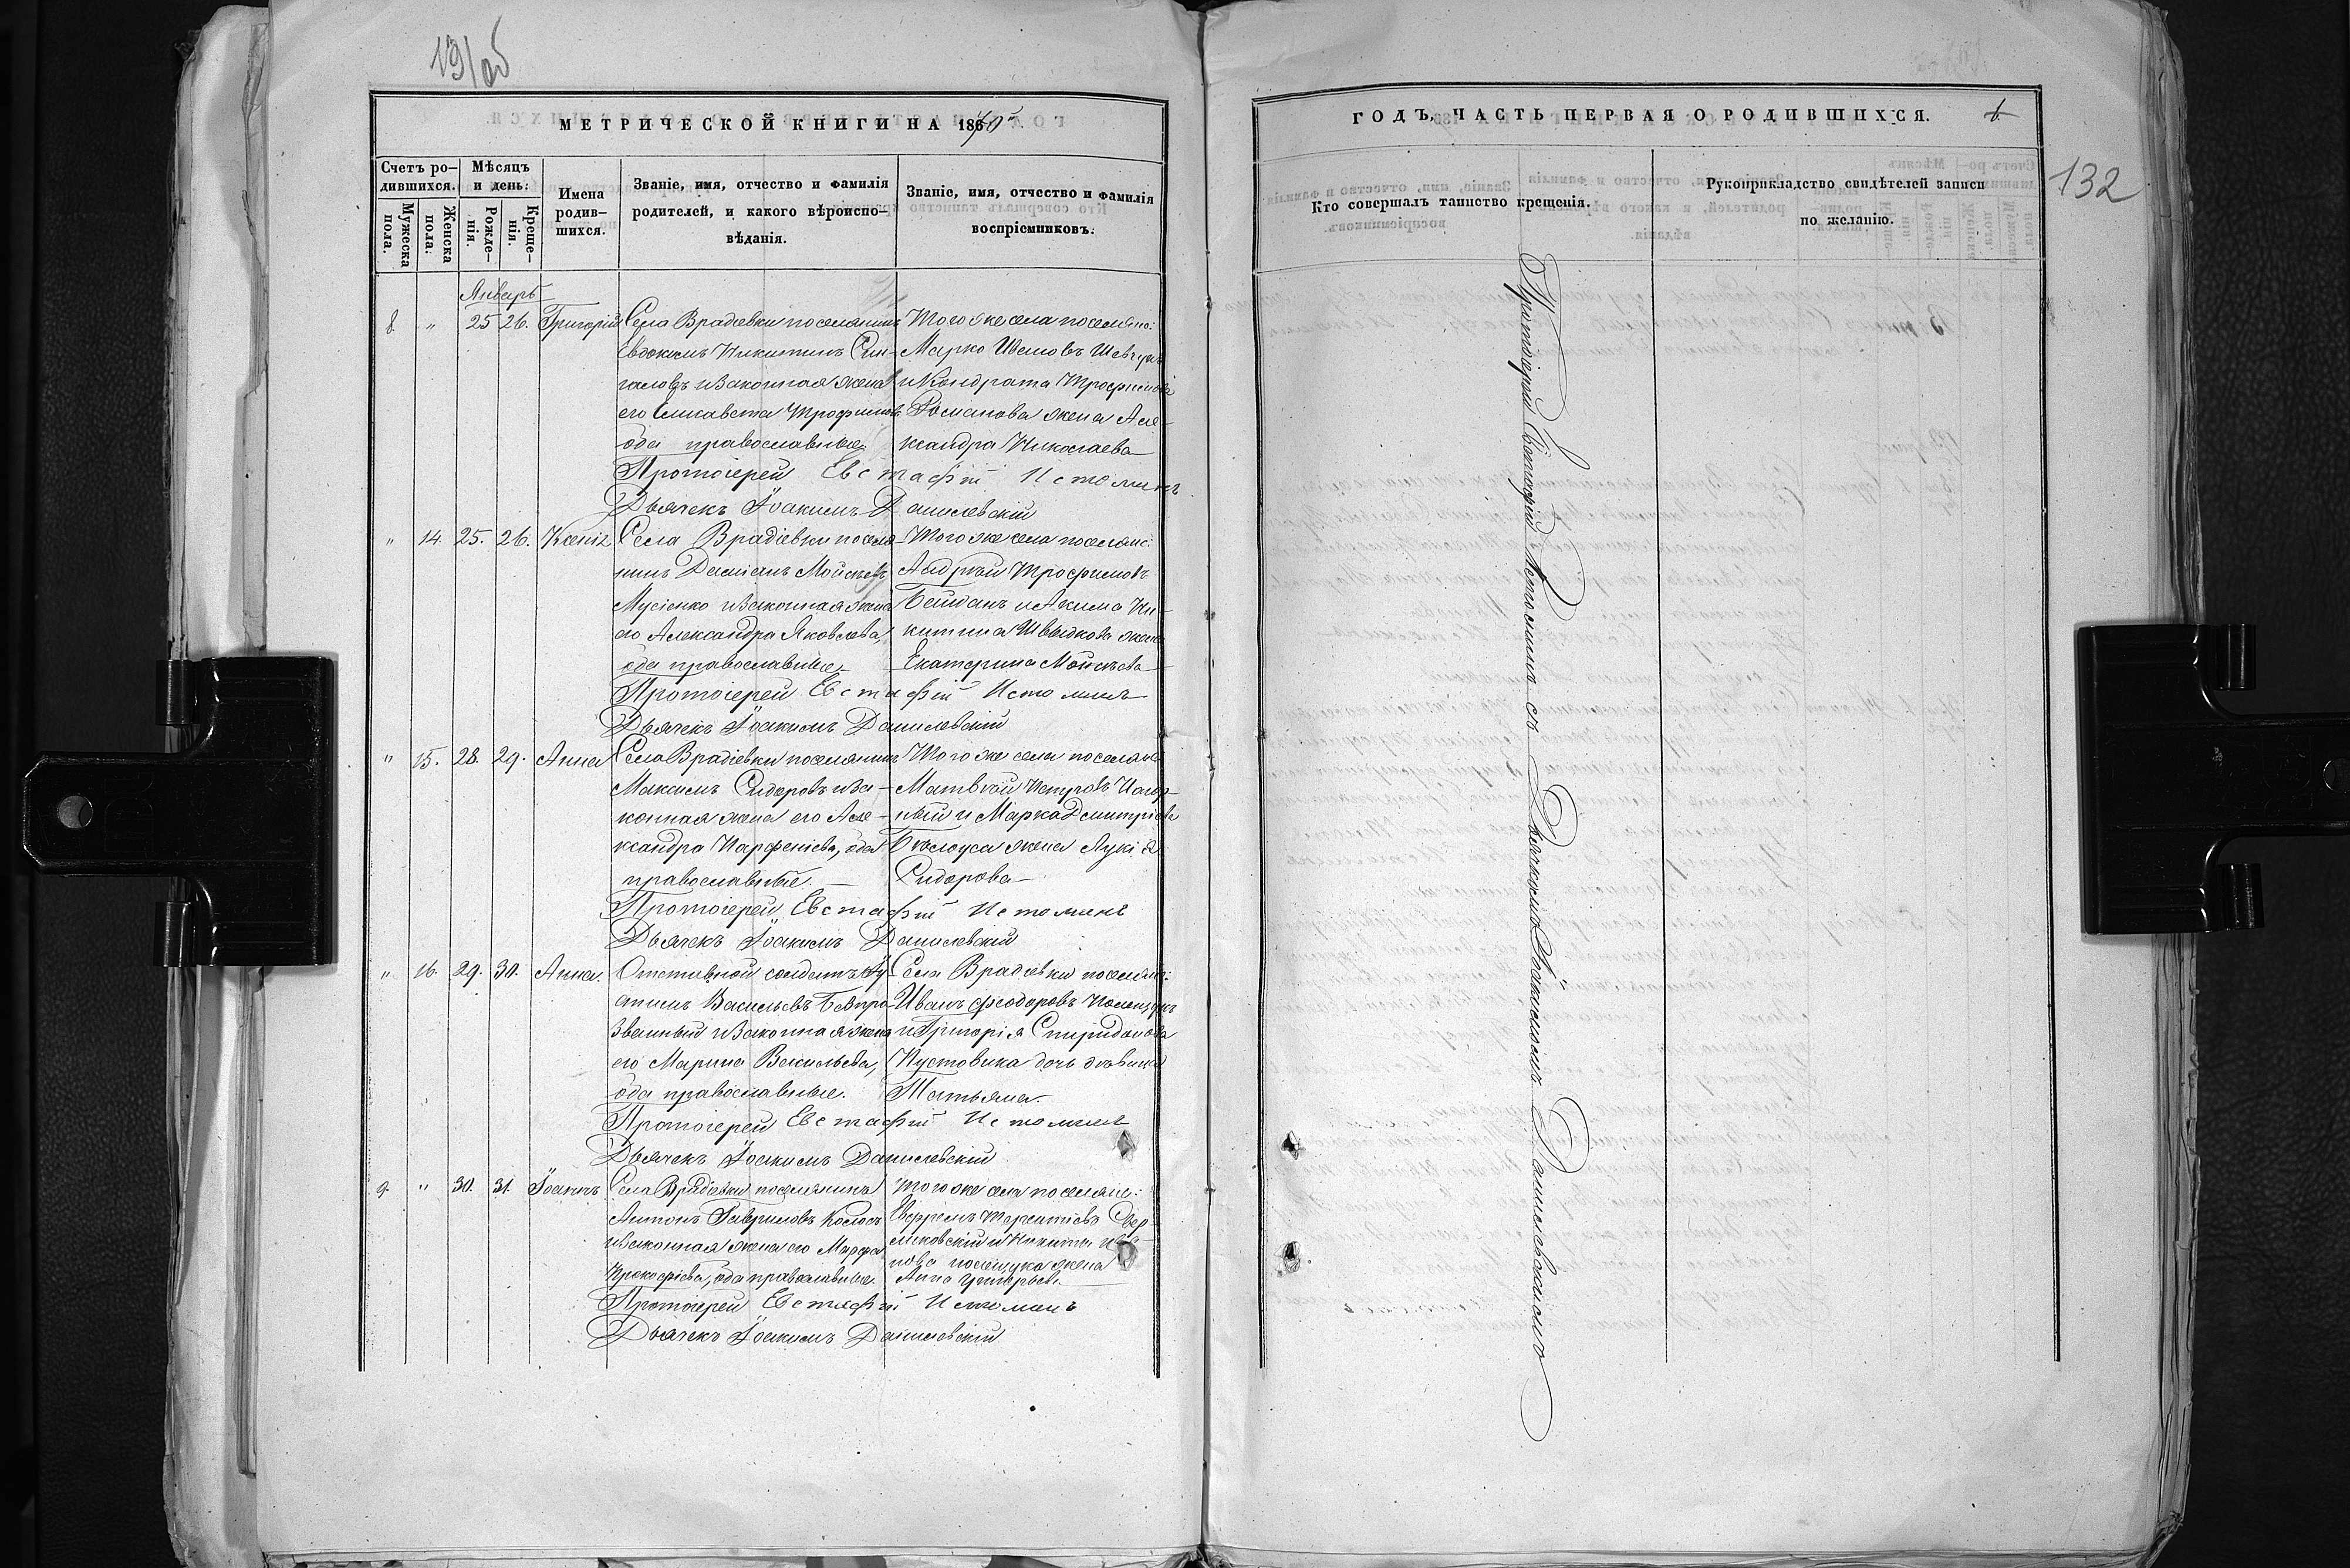 19/об
МЕТРИЧЕСКОЙ КНИГИ НА 1870й
Счетъ ро-
дившихся.
Мѣсяцъ
и день:
Мужеска
пола.
Женска
пола.
Рожде-
нія.
Креще-
нія.
Имена
родив-
шихся.
Званіе, имя, отчество и фамилія
родителей, и какого вѣроиспо-
вѣданія.
Званіе, имя, отчество и фамилія
воспріемниковъ.
Январь
8. " 25 26. Григорій Села Врадіевки поселянинъ
Евдокимъ Никитинъ Син-
галовъ и законная жена
его Елисавета Трофимова
оба православные.
Того же села поселяне:
Марко Ивановъ Шевчукъ
и Кондрата Трофимова
Романова жена Але-
ксандра Николаева
Протоіерей Евстафій Истоминъ
Дьячекъ Іоакимъ Данилевскій
" 14. 25. 26. Ксенія Села Врадіевки поселя-
нинъ Даміанъ Мойсѣевъ
Мусіенко и законная жена
его Александра Яковлева,
оба православные.
Того же села поселяне:
Андрей Трофимовъ
и Акима Ни-
китина Швыдкова жена
Екатерина Мойсѣева
Протоіерей Евстафій Истоминъ
Дьячекъ Іоакимъ Данилевскій
" 15. 28. 29. Анна Села Врадіевки поселянинъ
Максимъ Сидоровъ и за-
конная жена его Але-
ксандра Парфеніева, оба
православные.
Того же села поселяне
Матвѣй Петровъ Нагор-
ный и Марка Дмитріева
Бѣлоуса жена Лукія
Сидорова
Протоіерей Евстафій Истоминъ
Дьячекъ Іоакимъ Данилевскій
" 16. 29. 30. Анна. Отставной солдатъ Іу-
стинъ Васильевъ Безпро-
званный и законная жена
его Марина Васильева,
оба православные.
Села Врадіевки поселяне:
Иванъ Феодоровъ Полещукъ
и Григорія Спиридонова
Пустовика дочь дѣвица
Татьяна.
Протоіерей Евстафій Истоминъ
Дьячекъ Іоакимъ Данилевскій
9. " 30. 31. Іоаннъ Села Врадіевки поселянинъ
Антонъ Гавриловъ Колосъ
и законная жена его Марфа
Прокофіева, оба православные.
Того же села поселяне:
Ефремъ Терентіевъ Свер-
ликовскій и Никиты Ива-
нова Полещука жена
Анна Григорьева
Протоіерей Евстафій Истоминъ
Дьячекъ Іоакимъ Данилевскій
ГОДЪ, ЧАСТЬ ПЕРВАЯ О РОДИВШИХСЯ.
132
Кто совершалъ таинство крещенія.
Рукоприкладство свидѣтелей записи
по желанію.
Протоіерей Евстафій Истоминъ съ Дьячкомъ Іоакимомъ Данилевскимъ